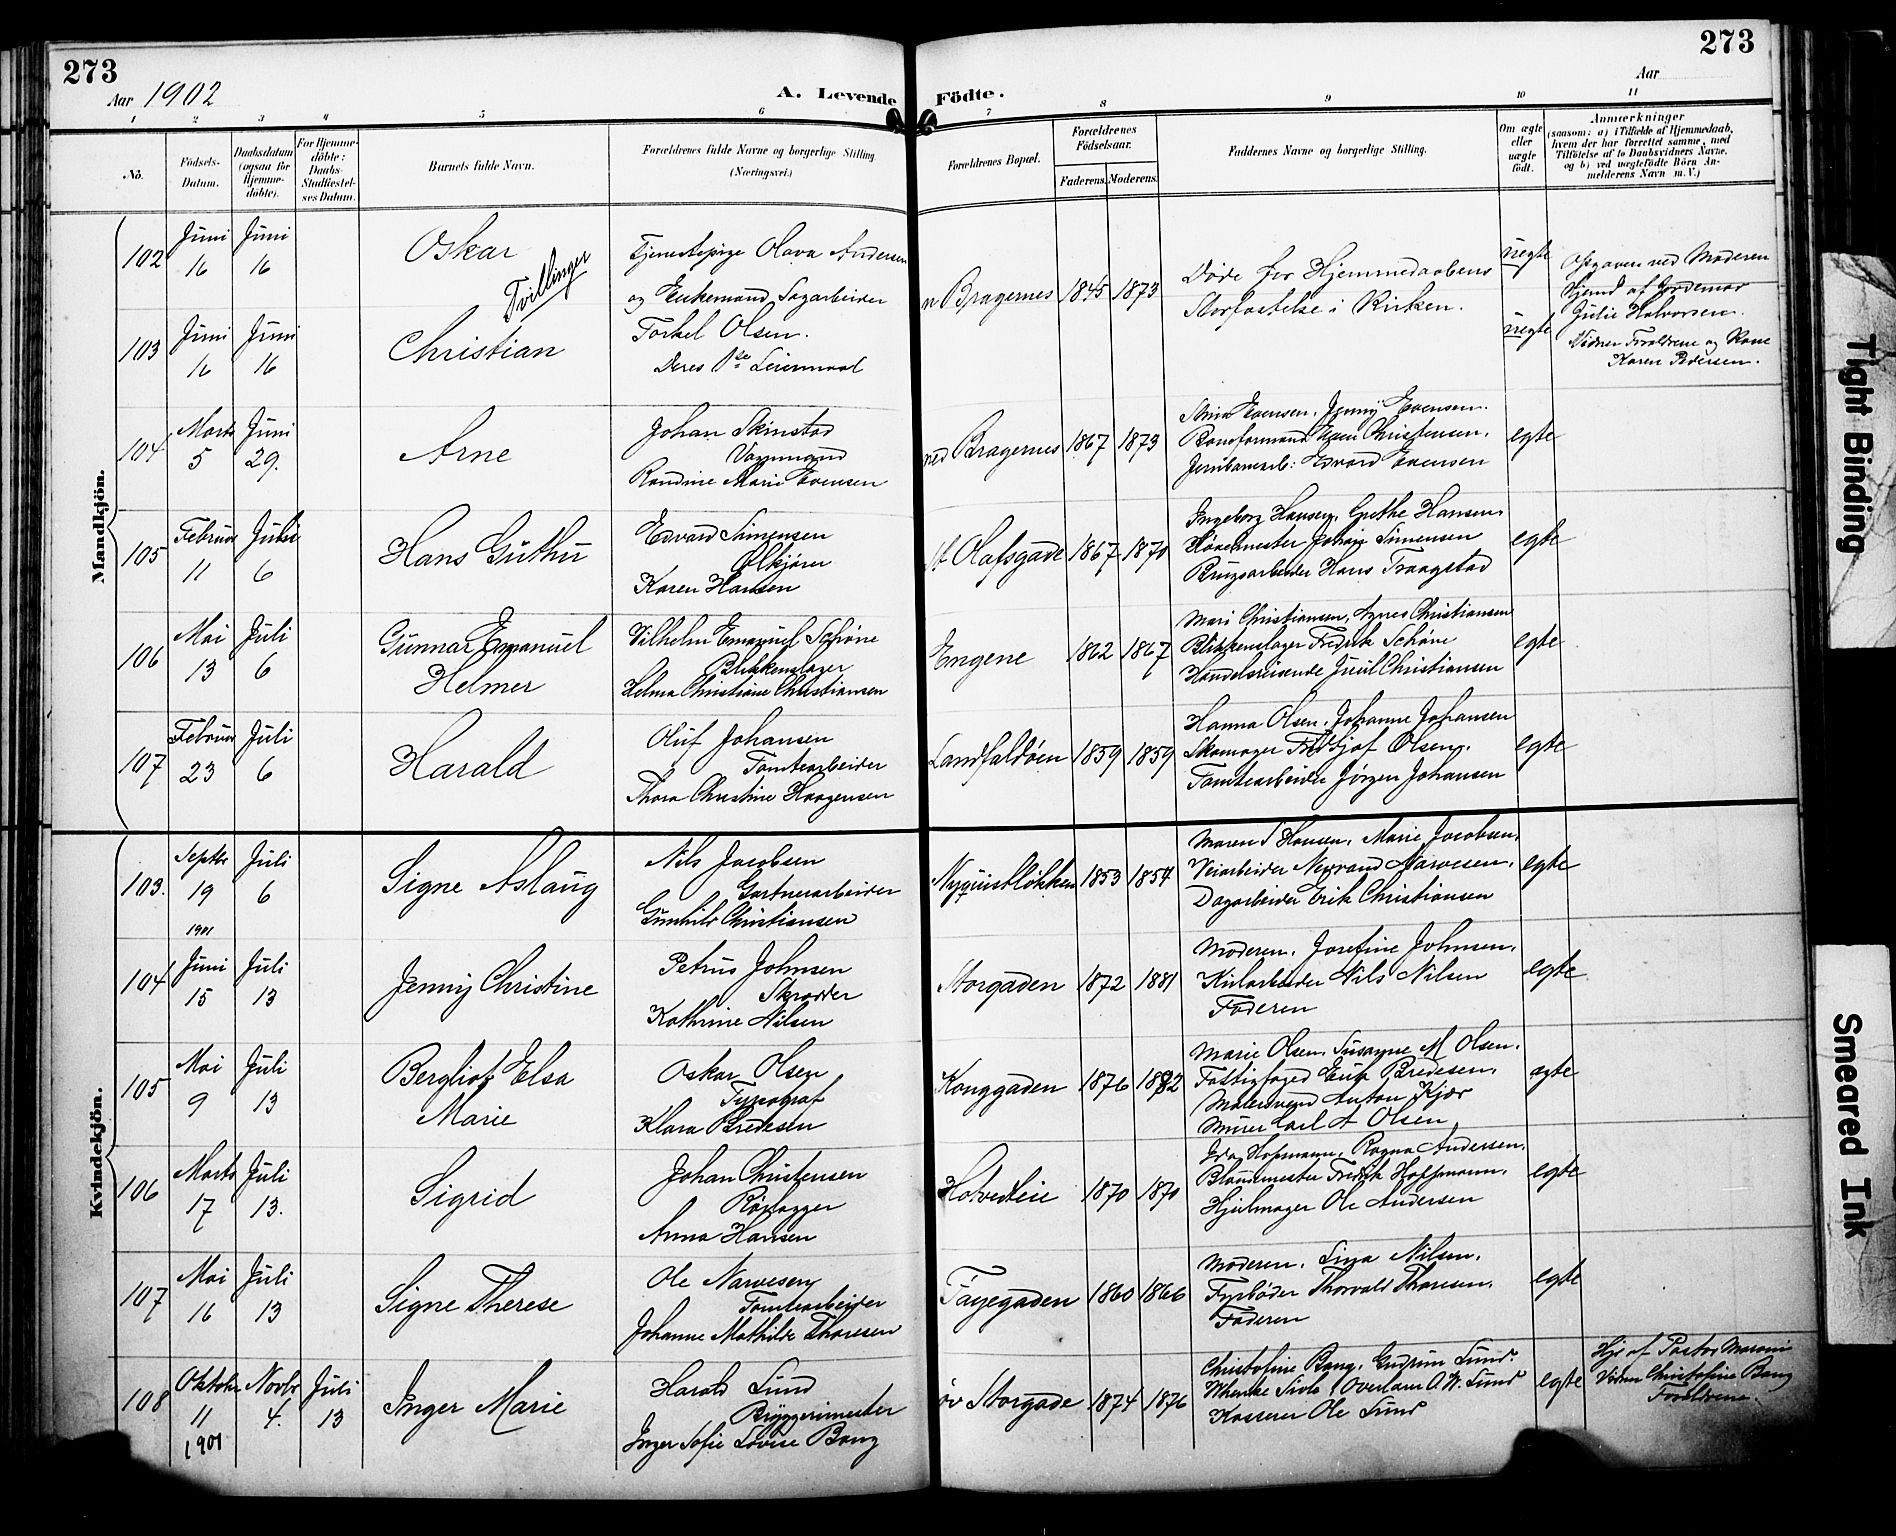 273
273
Aar 1902
A. Levende Födte.
Aar
1 2 3 4 5 6 7 8 9 10 11
No.
Födsels-Datum.
Daabsdatum (ogsaa for Hjemme-döbte).
For Hjemme-döbte: Daabs-Stadfæstel-ses Datum.
Barnets fulde Navn.
Forældrenes fulde Navne og borgerlige Stilling. (Næringsvei.)
Forældrenes Bopæl.
Forældrenes Födselsaar.
Faderens. Moderens.
Faddernes Navne og borgerlige Stilling.
Om ægte eller uægte födt.
Anmærkninger
(saasom: a) i Tilfælde af Hjemmedaab, hvem der har forrettet samme, med Tilföielse af to Daabsvidners Navne, og b) ved uægtefödte Börn An-melderens Navn m. V.)
Mandkjön.
102 Juni 16 Juni 16 Oskar
Tvillinger
Tjenestepige Olava Andersen
og Enkemand Sagarbeider
Torkel Olsen.
Deres 1ste Leiermaal
Bragernes 1845 1873
Døde før Hjemmedaabens
Storfæstelse i Kirken.
uegte
Opgaven ved Moderen
Hjemd af Jordemor
Julie Halvorsen.
Karen Pedersen.
103 Juni 16 Juni 16 Christian
uegte
104 Marts 5 Juni 29. Arne
Johan Skinstad
Vognmand
Randine Marie Evensen
ned Bragernes 1867 1873
Evensen, Jenny Evensen.
Baneformand Even Christensen.
Jernbanearb: Edvard Evensen
egte
105 Februar 11 Juli 6 Hans Guthu
Edvard Simensen
Ølkjører
Karen Hansen
St Olafsgade 1867 1870
Ingeborg Hansen, Grethe Hansen.
Simensen
Brugsarbeider Hans Traagstad
egte
106 Mai 13 Juli 6 Gunnar Emanuel
Helmer
Vilhelm Emanuel Schøne
Blikkenslager
Helma Christine Christiansen
Engene 1862 1867
Mari Christiansen, Agnes Christiansen
Blikkenslager Fredrik Schøne
Handelsreisende Juul Christiansen
egte
107 Februar 23 Juli 6 Harald
Oluf Johansen
Tomtearbeider
Thora Christine Haagensen
Landfaldøen 1859 1859
Hanna Olsen, Johanne Johansen
Skomager Fridtjof Olsen.
Tomtearbeider Jørgen Johansen
egte
Kvindekjön.
103. Septbr 19 1901 Juli 6 Signe Aslaug
Nils Jacobsen
Gartnerarbeider
Gunhild Christiansen
Nyquistløkken 1853 1857
Maren S Hansen, Marie Jacobsen,
Veiarbeider Narvesen,
Dagarbeider Erik Christiansen
egte
104 Juni 15 Juli 13 Jenny Christine
Petrus Johnsen
Skrædder
Kathrine Nilsen
Storgaden 1872 1881
Moderen, Josefine Johnsen,
Nils Nilsen
Faderen
egte
105 Mai 9 Juli 13 Bergliot Elsa
Marie
Oskar Olsen
Typograf
Klara Bredesen
Konggaden 1876 1882
Marie Olsen, Susanne M Olsen.
Fattigfoged Erik Bredesen,
Malersvend Anton Kjær
Murer Carl A Olsen
ægte
106 Marts 17 Juli 13. Sigrid
Johan Christensen
Rørlægger
Anna Hansen
Hotvedtleie 1870 1870
Ida Hoffmann, Ragna Andersen,
Fredrik Hoffmann,
Hjulmager Ole Andersen
egte
107 Mai 16 Juli 13 Signe Therese
Ole Narvesen
Tomtearbeider
Johanne Mathilde Thoresen
Fayegaden 1860 1866
Moderen, Lina Nilsen.
Fyrbøder Thorvald Thoresen.
Faderen
egte
108 Oktober 11 1901 Novbr 4. Juli 13 Inger Marie
Harald Lund
Bryggerimester
Inger Sofie Lovise Bang
øv Storgade 1874 1876
Christofine Bang, Gudrun Lund.
O. W. Lund
Kasserer Ole Lund
egte
Hjd af Pastor
Vidner Christofine Bang
Forældrene.
Tight Binding
Smeared Ink